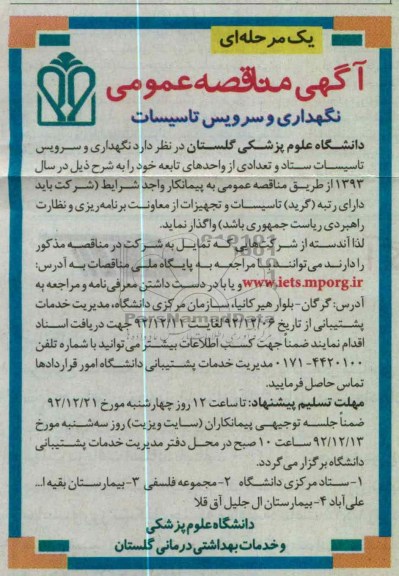 یک مرحله‌ای
آگهی مناقصه عمومی
نگهداری و سرویس تاسیسات
دانشگاه علوم پزشکی گلستان در نظر دارد نگهداری و سرویس
تاسیسات ستاد و تعدادی از واحدهای تابعه خود را به شرح ذیل در سال
۱۳۹۳ از طریق مناقصه عمومی به پیمانکار واجد شرایط (شرکت باید
دارای رتبه (گرید) تاسیسات و تجهیزات از معاونت برنامه‌ریزی و نظارت
راهبردی ریاست جمهوری باشد) واگذار نماید.
لذا آندسته از شرکت‌هائی که تمایل به شرکت در مناقصه مذکور
را دارند می‌توانند با مراجعه به پایگاه ملی مناقصات به آدرس:
www.iets.mporg.ir و یا با در دست داشتن معرفی‌نامه و مراجعه به
آدرس: گرگان-بلوار هیرکانیا، سازمان مرکزی دانشگاه، مدیریت خدمات
پشتیبانی از تاریخ ۹۲/۱۲/۰۶ لغایت ۹۲/۱۲/۱۱ جهت دریافت اسناد
اقدام نمایند ضمناً جهت کسب اطلاعات بیشتر می‌توانید با شماره تلفن
۴۴۲۰۱۰۰-۰۱۷۱ مدیریت خدمات پشتیبانی دانشگاه امور قراردادها
تماس حاصل فرمایید.
مهلت تسلیم پیشنهاد: تا ساعت ۱۲ روز چهارشنبه مورخ ۹۲/۱۲/۲۱
ضمناً جلسه توجیهی پیمانکاران (سایت ویزیت) روز سه‌شنبه مورخ
۹۲/۱۲/۱۳ ساعت ۱۰ صبح در محل دفتر مدیریت خدمات پشتیبانی
دانشگاه برگزار می‌گردد.
۱-ستاد مرکزی دانشگاه ۲-مجموعه فلسفی ۳-بیمارستان بقیه ا...
علی‌آباد ۴-بیمارستان ال جلیل آق قلا
دانشگاه علوم پزشکی
و خدمات بهداشتی درمانی گلستان